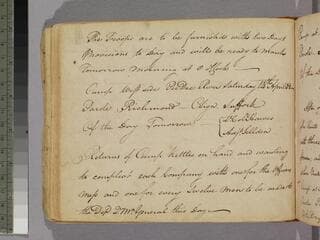 The Troops are to be furnished with two Days
Provisions to Day and will be ready to march
Tomorrow Morning at 8 oClock
Camp West side PeeDee River Saturday April
Parole Richmond CSign Suffolk
Of the Day Tomorrow
Returns of Camp Kettles on hand and wanting
to compleat each Company with one for the Officers
Mess and one for every Twelve Men to be made to
the Dep Qr Mr General this Day